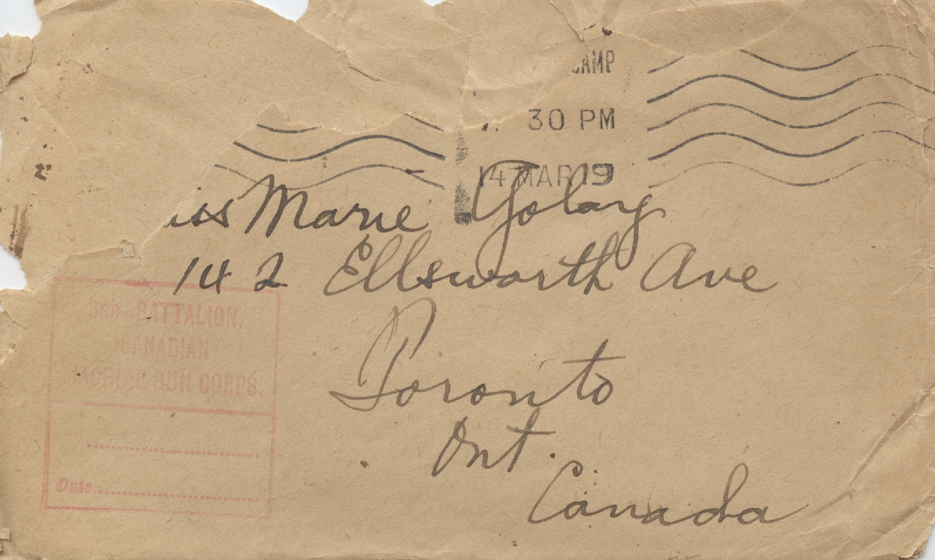 CAMP
30 PM
14 MAR 19
iss Marie Golay
142 Ellsworth Ave
Toronto
Ont.
Canada
3RD BATTALION,
CANADIAN
MACHINE GUN CORPS.
Date